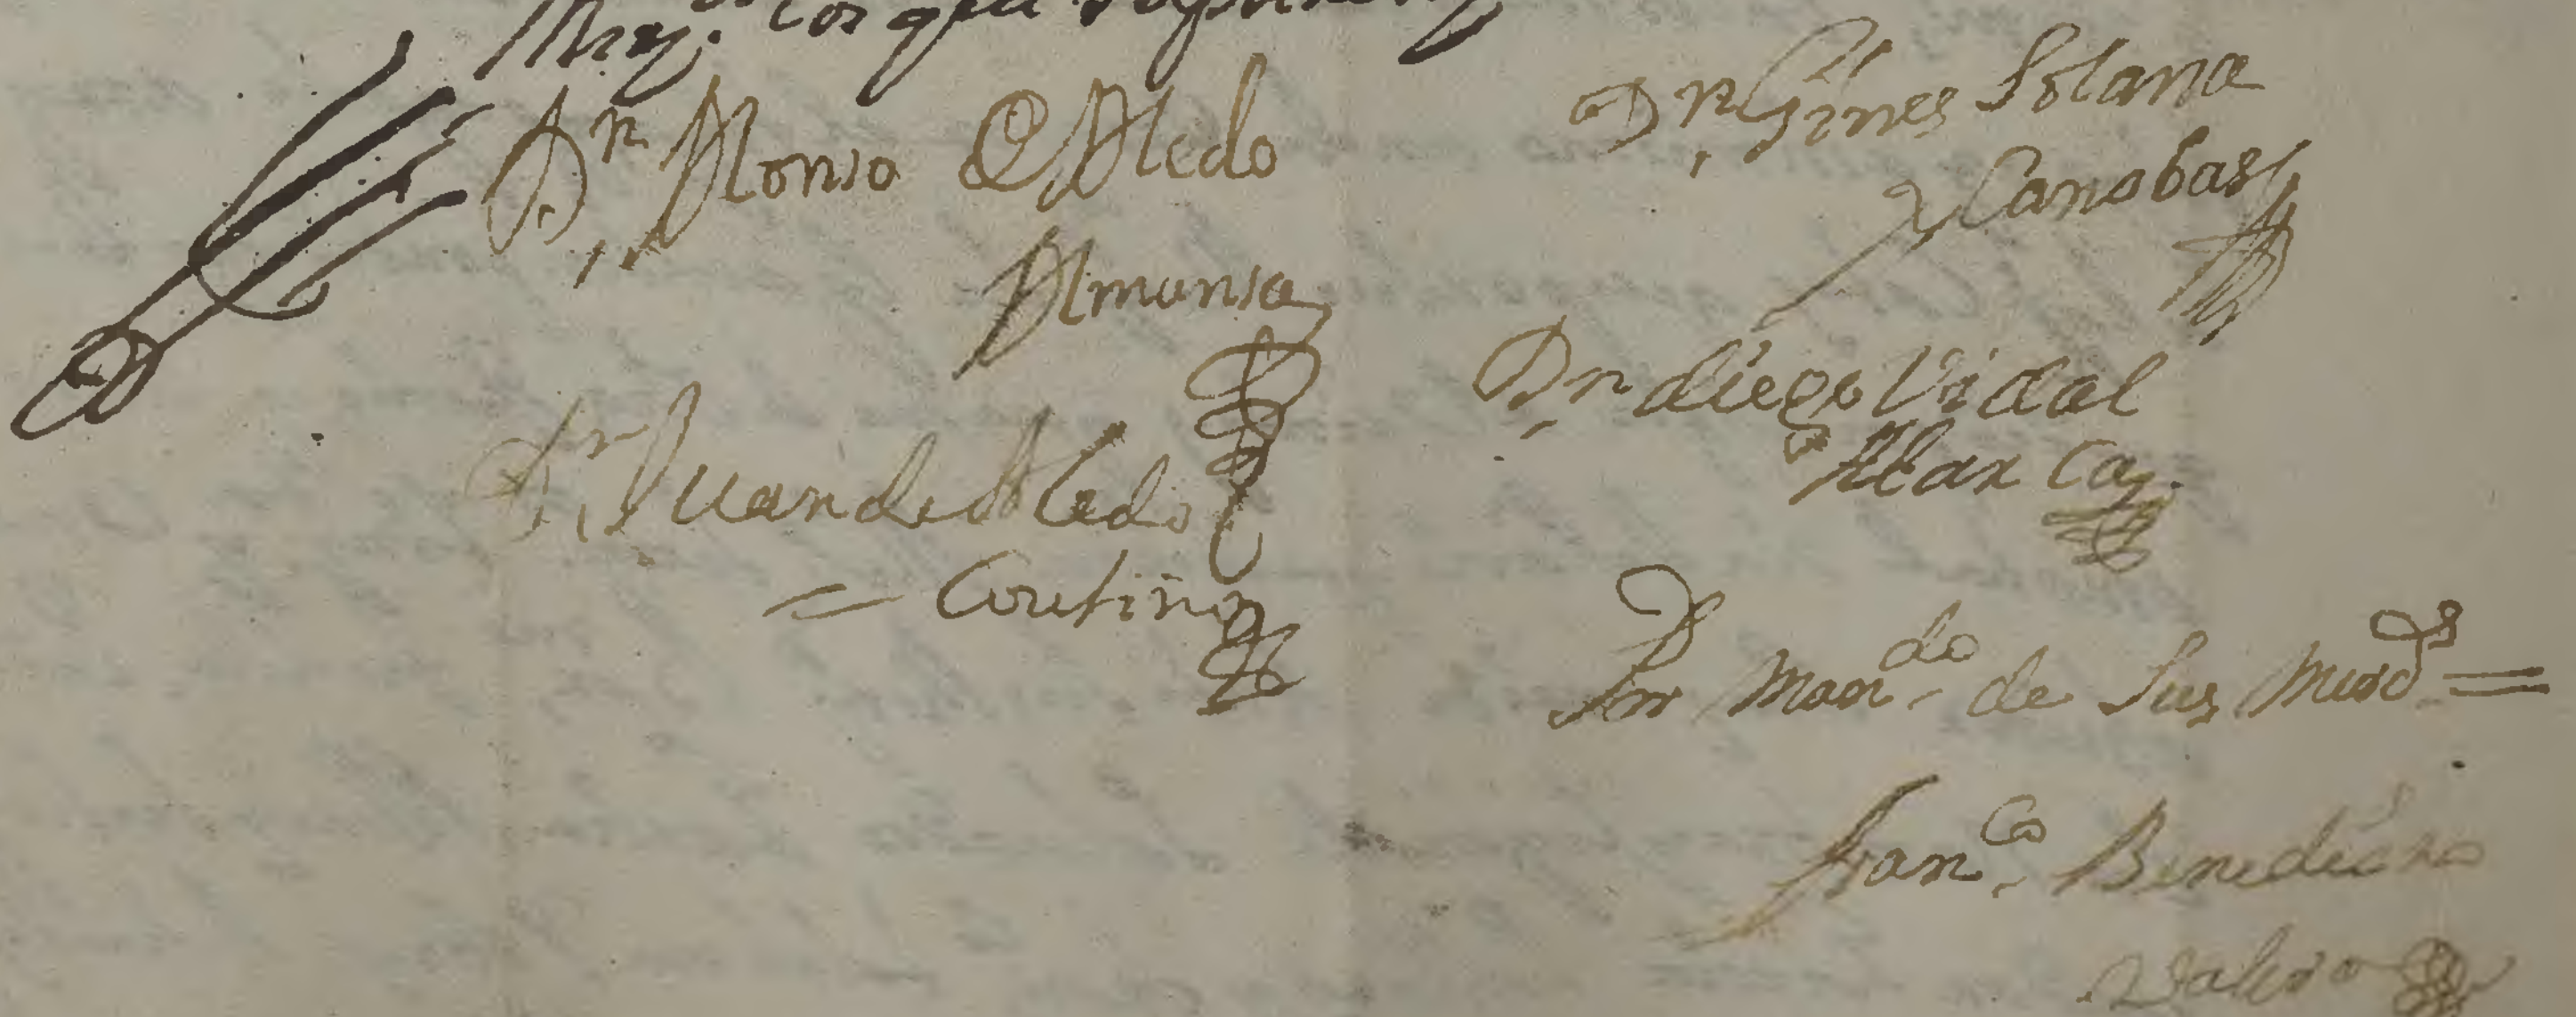 Dn Alonso de Aledo
Almansa
Dn Juan de Aledo
= Coutiño
Dn Gines Solana
y Canobas
Dn diego Vidal
Alarca
Por Mando de Sus Mrds =
Franco Benedicto